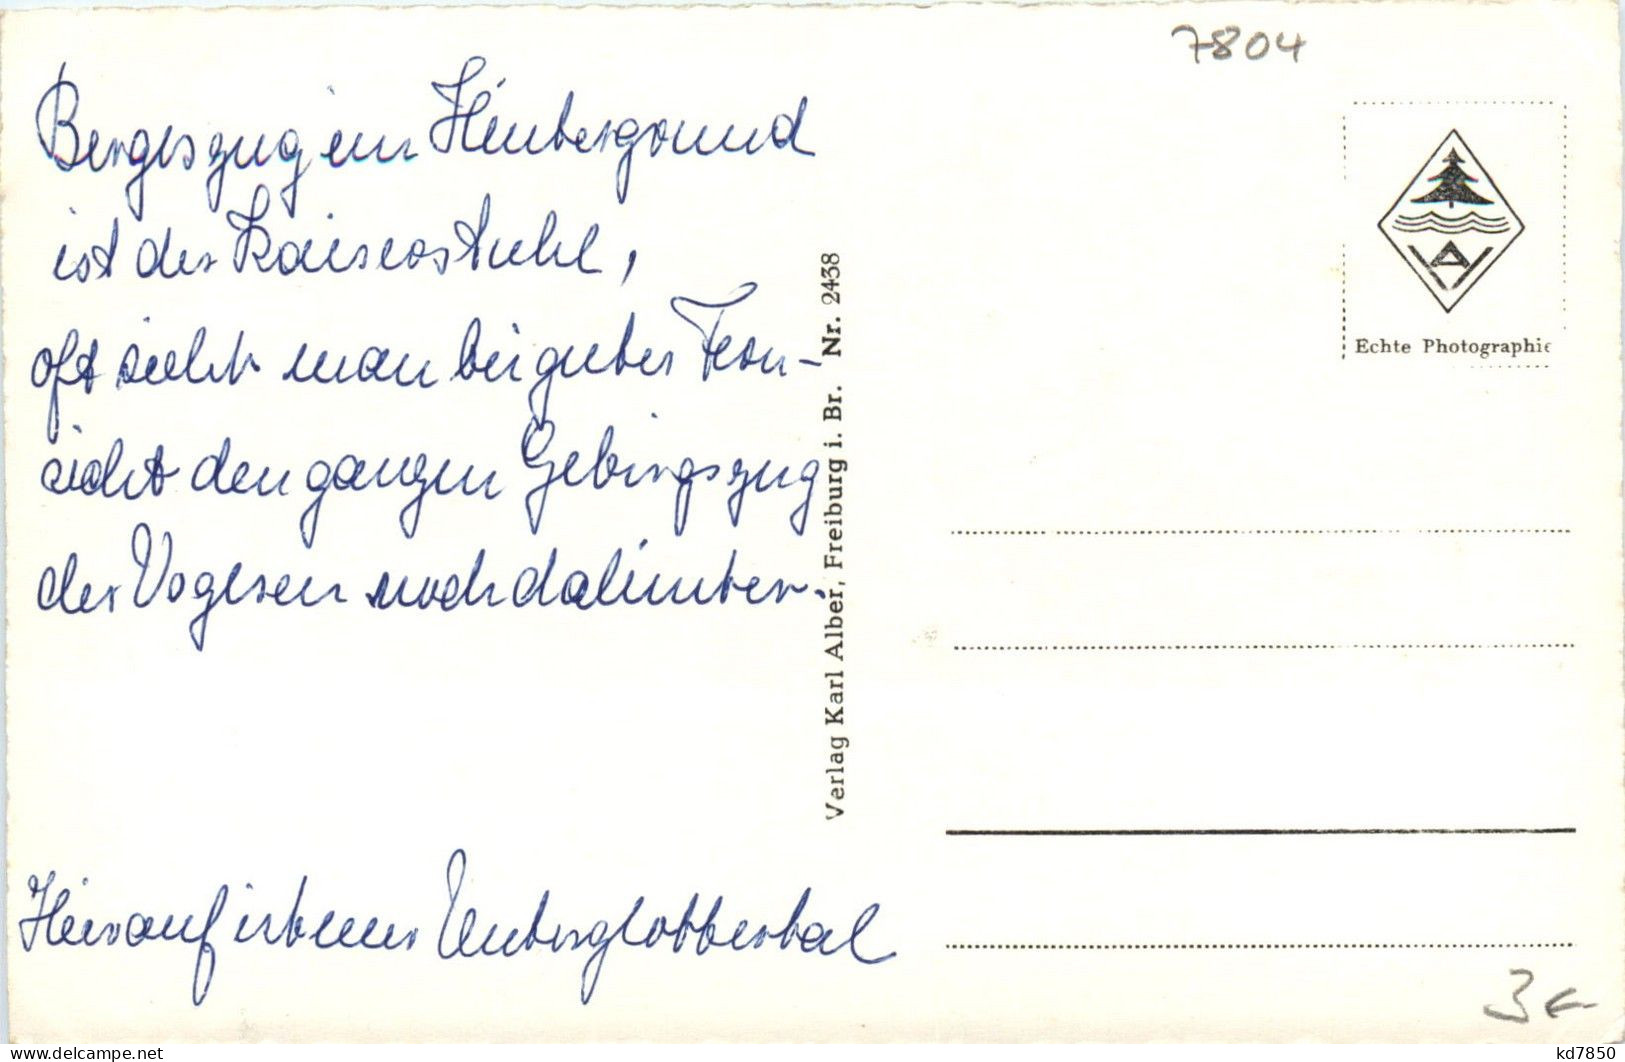 7804
Bergeszug im Hintergrund
ist der Kaiserstuhl,
oft sieht man bei guter Fern-
sicht den ganzen Gebirgszug
der Vogesen noch dahinter.
Hierauf ist nur Unterglottertal
Verlag Karl Alber, Freiburg i. Br. Nr. 2438
Echte Photographie
3 €
kd7850
delcampe.net